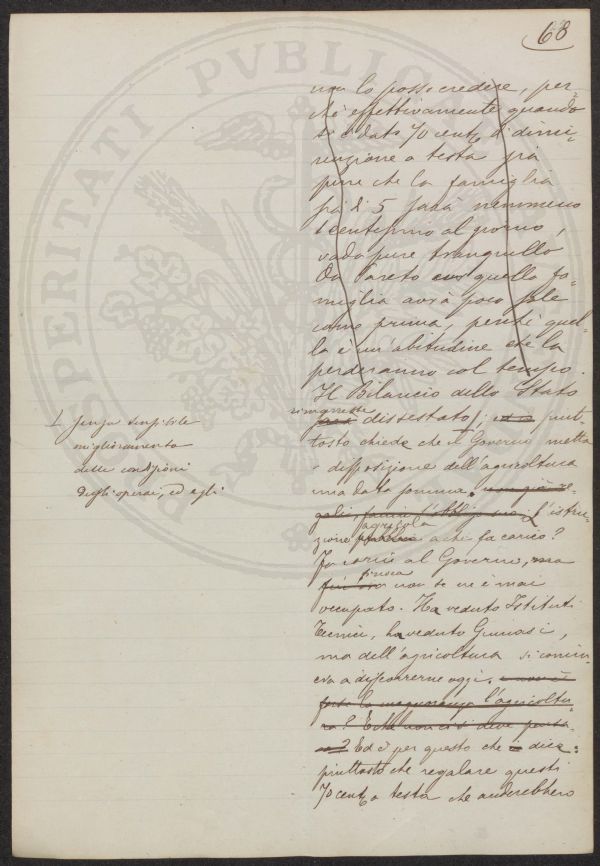 68
non lo posso credere, per-
chè effettivamente quando
si è dato 70 cent. di dimi-
nuzione a testa già
pure che la famiglia
sia di 5 sarà nemmeno
1 centesimo al giorno,
vada pure tranquillo
On. Pareto quella fa-
miglia avrà poco sale
come prima, perchè quel-
la è un'abitudine che la
perderanno col tempo.
Il Bilancio dello Stato
rimarrebbe
sarà dissestato /;  piut-
tosto chiede che il Governo metta
a disposizione dell'agricoltura
una data somma.
L'istru-
agricola
zione pubblica a chi fa carico?
Fa carico al Governo, ma
finora
fin ora non se ne è mai
occupato. Ha veduto Istituti
Tecnici, ha veduto Ginnasi,
ma dell'agricoltura si comin-
cia a discorrerne oggi.
forse la l'agricoltu-
ra? E che non ci si deve pensa-
re? Ed è per questo che dice:
piuttosto che regalare questi
70 cent. a testa che anderebbero
/ senza sensibile
miglioramento
delle condizioni
degli operai, ed egli
PROSPERITATI PVBLICAE